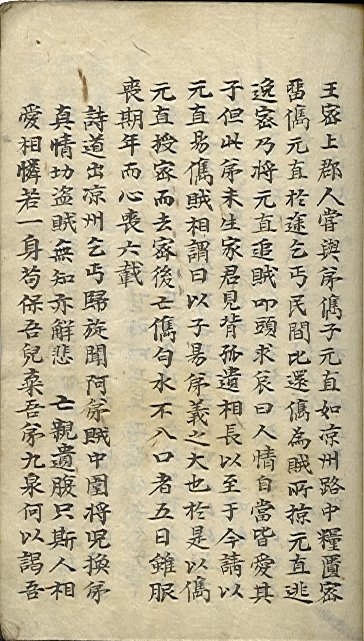 王密上郡人嘗與弟儁子元直如凉州路中糧匱密
畱儁元直於途乞丐民間比還儁為賊所掠元直逃
逸密乃將元直追賊叩頭求哀曰人情自當皆愛其
子但此弟未生家君見背孤遺相長以至于今請以
元直易儁賊相謂曰以子易弟義之大也於是以儁
元直授密而去密後亡儁勺水不入口者五日雖服
喪期年而心喪六載
詩道出凉州乞丐歸旋聞阿弟賊中圍將児換弟
真情切盗賊無知亦解悲 亡親遺腹只斯人相
愛相憐若一身苟保吾兒棄吾弟九泉何以謁吾